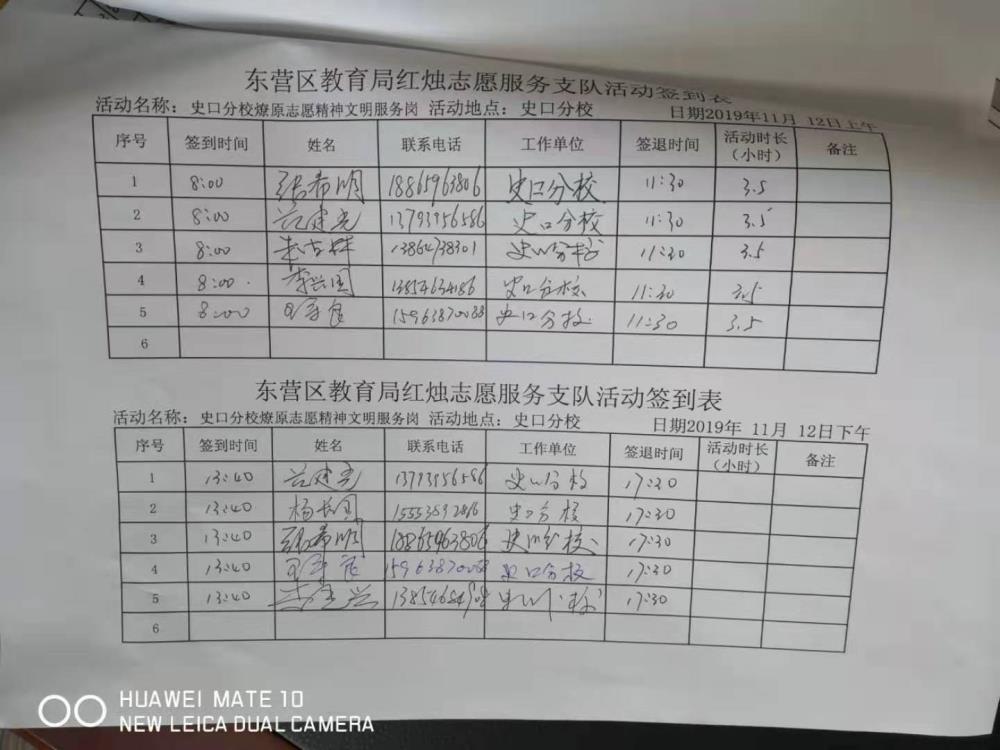 东营区教育局红烛志愿服务支队活动签到表
活动名称：史口分校燎原志愿精神文明服务岗 活动地点：史口分校 日期2019年11月 12日上午
序号 签到时间 姓名 联系电话 工作单位 签退时间 活动时长（小时） 备注
1 8:00 张希明 18865963806 史口分校 11:30 3.5
2 8:00 13793956586 史口分校 11:30 3.5
3 8:00 13864738301 史口分校 11:30 3.5
4 8:00 李兴国 史口分校 11:30 3.5
5 8:00 15963870088 史口分校 11:30 3.5
6
东营区教育局红烛志愿服务支队活动签到表
活动名称：史口分校燎原志愿精神文明服务岗 活动地点：史口分校 日期2019年 11月 12日下午
序号 签到时间 姓名 联系电话 工作单位 签退时间 活动时长（小时） 备注
1 13:40 13793956586 史口分校 17:30
2 13:40 杨长国 史口分校 17:30
3 13:40 张希明 18865963806 史口分校 17:30
4 13:40 15963870088 史口分校 17:30
5 13:40 史口分校 17:30
6
HUAWEI MATE 10
NEW LEICA DUAL CAMERA